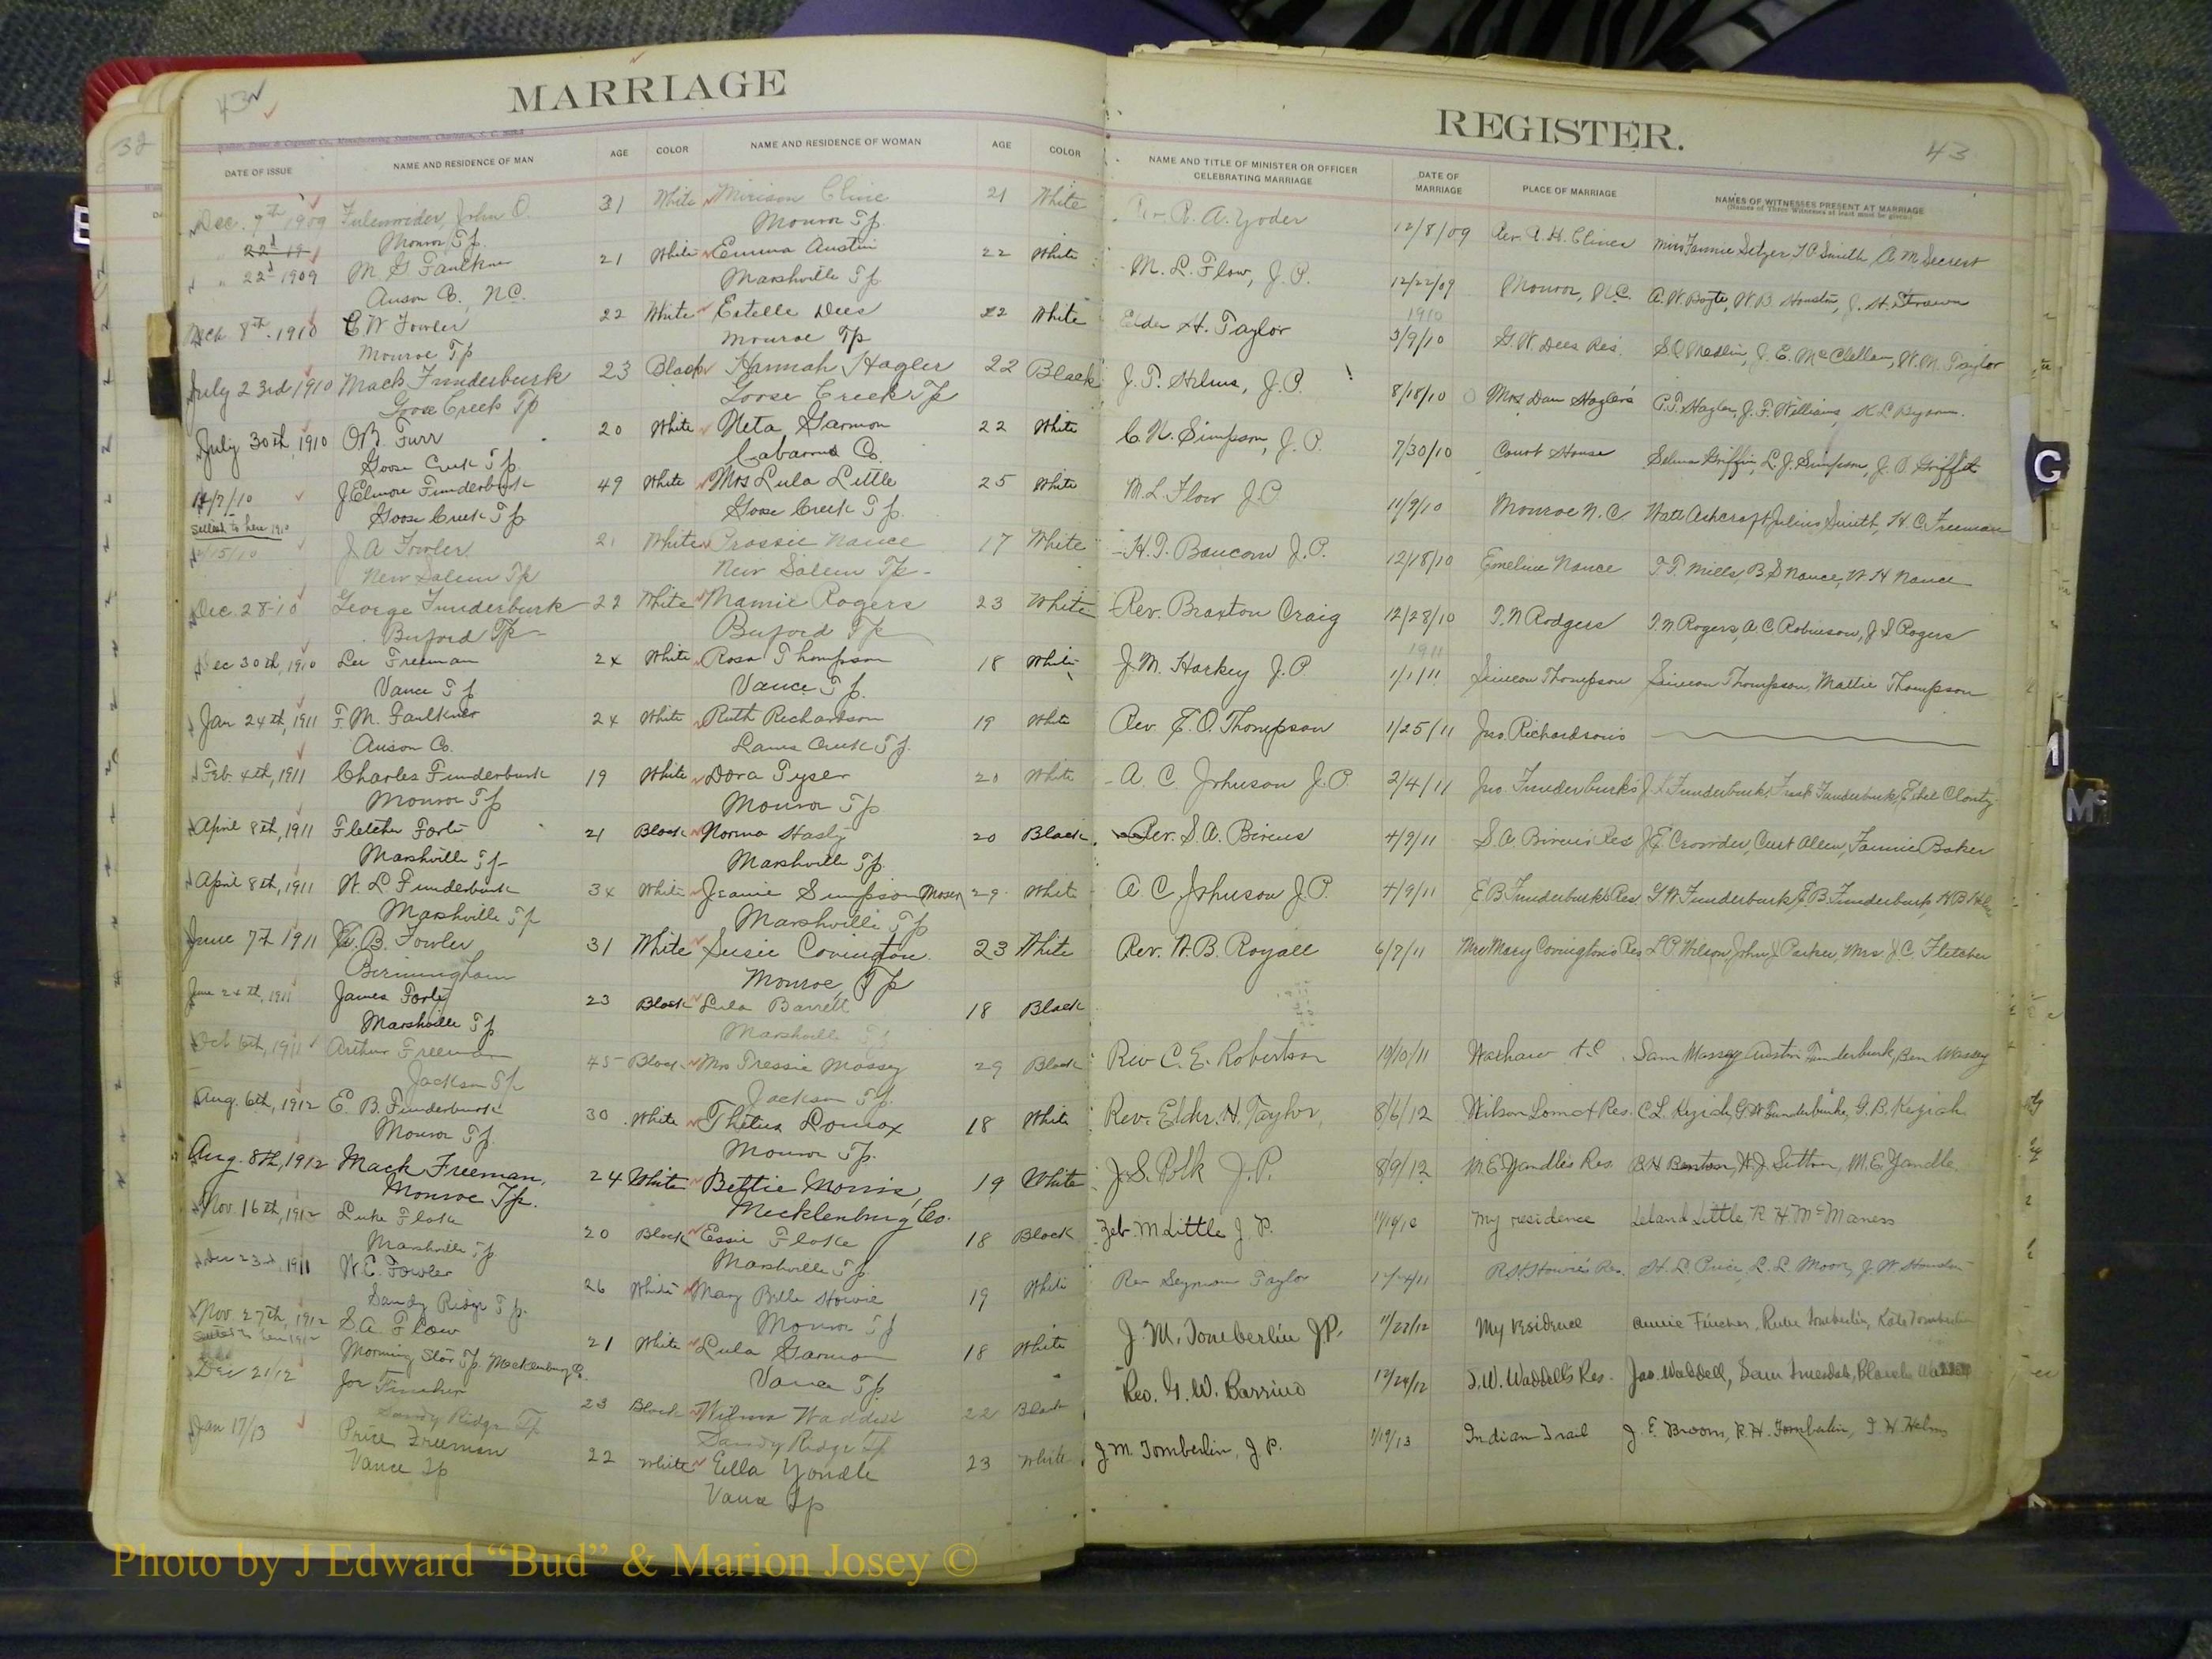 MARRIAGE
43
32
DATE OF ISSUE NAME AND RESIDENCE OF MAN AGE COLOR NAME AND RESIDENCE OF WOMAN AGE COLOR
Dec. 9th 1909 Fulenwider, John O. 31 White Mirison Cline 21 White
Monroe Tp. Monroe Tp.
" 22d 1909 M. G. Faulkner 21 White Emma Austin 22 White
Anson Co. N.C. Marshville Tp.
Mch 8th 1910 C W Fowler 22 White Estelle Dees 22 White
Monroe Tp Monroe Tp
July 23rd 1910 Mack Funderburk 23 Black Hannah Hagler 22 Black
Goose Creek Tp Goose Creek Tp
July 30th, 1910 O.B. Furr 20 White Neta Garmon 22 White
Goose Creek Tp. Cabarrus Co.
11/9/10 J Elmore Funderburk 49 White Mrs Lula Little 25 White
Goose Creek Tp Goose Creek Tp.
Settled to here 1910
12/15/10 J A Fowler 21 White Nance 17 White
New Salem Tp New Salem Tp-
Dec. 28-10 George Funderburk 22 White Mamie Rogers 23 White
Buford Tp- Buford Tp
Dec 30th, 1910 Lee Freeman 24 White Rosa Thompson 18 White
Vance Tp Vance Tp.
Jan 24th, 1911 F. M. Faulkner 24 White Ruth Richardson 19 White
Anson Co. Lanes Creek Tp.
Feb. 4th, 1911 Charles Funderburk 19 White Dora Tyser 20 White
Monroe Tp Monroe Tp
April 8th, 1911 Fletcher 21 Black Norma Hasty 20 Black
Marshville Tp- Marshville Tp.
April 8th, 1911 W. L Funderburk 34 White Jeanie Simpson Moser 29 White
Marshville Tp Marshville Tp
June 7th 1911 B. Fowler 31 White Susie Covington 23 White
Birmingham Monroe, Tp
June 24th, 1911 James 23 Black Lula Barrett 18 Black
Marshville Tp Marshville Tp
Oct 6th, 1911 Arthur Freeman 45 Black Mrs Tressie Massey 29 Black
Jackson Tp Jackson Tp.
Aug. 6th, 1912 E. B. Funderburk 30 White Thetus Lomax 18 White
Monroe Tp. Monroe Tp.
Aug. 8th, 1912 Mack Freeman, 24 White Bettie Morris, 19 White
Monroe Tp. Mecklenburg Co.
Nov. 16th, 1912 Luke Flake 20 Black Essie Flake 18 Black
Marshville Tp Marshville Tp.
Dec 23d, 1911 W. E. Fowler 26 White Mary Belle Howie 19 White
Sandy Ridge Tp. Monroe Tp
Nov. 27th, 1912 S. A. Flow 21 White Lula Garmon 18 White
Settled to here 1912
Morning Star Tp. Mecklenburg Co. Vance Tp
Dec 21/12 Joe 23 Black Wilma Waddell 22 Black
Sandy Ridge Tp Sandy Ridge Tp
Jan 17/13 Price Freeman 22 White Ella Yandle 23 White
Vance Tp Vance Tp
REGISTER.
43
NAME AND TITLE OF MINISTER OR OFFICER CELEBRATING MARRIAGE DATE OF MARRIAGE PLACE OF MARRIAGE NAMES OF WITNESSES PRESENT AT MARRIAGE
(Names of Three Witnesses at least must be given.)
Rev. R. A. Yoder 12/8/09 Rev. A. H. Clines Miss Fannie Setzer, Smith, A. M. Secrest
M. L. Flow, J. P. 12/22/09 Monroe, N.C. A. W. W. B. Houston, J. H.
1910
Elder H. Taylor 3/9/10 G. W. Dees Res. S. O. Medlin, J. E. McClellan, W. M. Taylor
J. T. Helms, J. P. 8/18/10 Mrs Dan Hagler's P. T. Hagler, J. F. Williams, K. L. Byrum.
C. N. Simpson, J. P. 7/30/10 Court House Selma Griffin, L. J. Simpson, J. Griffith
M L Flow J P 11/9/10 Monroe N.C Watt Ashcraft, Julius Smith, H. C. Freeman
H. T. Baucom J. P. 12/18/10 Emeline Nance T. T. Mills, B. S Nance, W H Nance
Rev. Braxton Craig 12/28/10 T. N Rodgers T. N Rogers, A. C. Robinson, J S Rogers
1911
J. M. Harkey J. P. 1/1/11 Simeon Thompson Simeon Thompson, Mattie Thompson
Rev. E. O. Thompson 1/25/11 Jno. Richardson's
A. C. Johnson J. P. 2/4/11 Jno. Funderburks Funderburk, Frank Funderburk,
Rev. S. A. Bivens 4/9/11 S. A. Bivens Res J. E. Crowder, Curt Allen, Fannie Baker
A C Johnson J. P. 4/9/11 E B Funderburks Res G. W Funderburk, E. B. Funderburk,
Rev. W. B. Royall 6/7/11 Mrs Mary Covington's Res L. P. Wilson, John J Parker, Mrs. J. C. Fletcher
Rev C. E. Robertson 10/10/11 Waxhaw N.C Sam Massey, Austin Funderburk, Ben Massey
Rev. Elder. H. Taylor, 8/6/12 Wilson Lomax Res. C L. Keziah, G. W Funderburke, G. B. Keziah
J. S. Polk J. P. 8/9/12 M. E. Yandles Res. B H Benton, W. J. Sutton, M. E. Yandle
Zeb. M. Little J. P. My residence Leland Little, R H McManess
Rev Seymour Taylor R. H. Howie's Res. H. L. Price, R. L. Moore, J. W.
J. M. Tomberlin J P. My residence Annie Fincher, Tomberlin, Kate Tomberlin
Rev. G. W. Barrino 12/24/12 J. W. Waddell's Res. Jas. Waddell, Sam
J. M. Tomberlin, J. P. 1/19/13 Indian Trail J. E. Broom, R. H. Tomberlin, T. H. Helms
G
Mc
Photo by J Edward “Bud” & Marion Josey ©